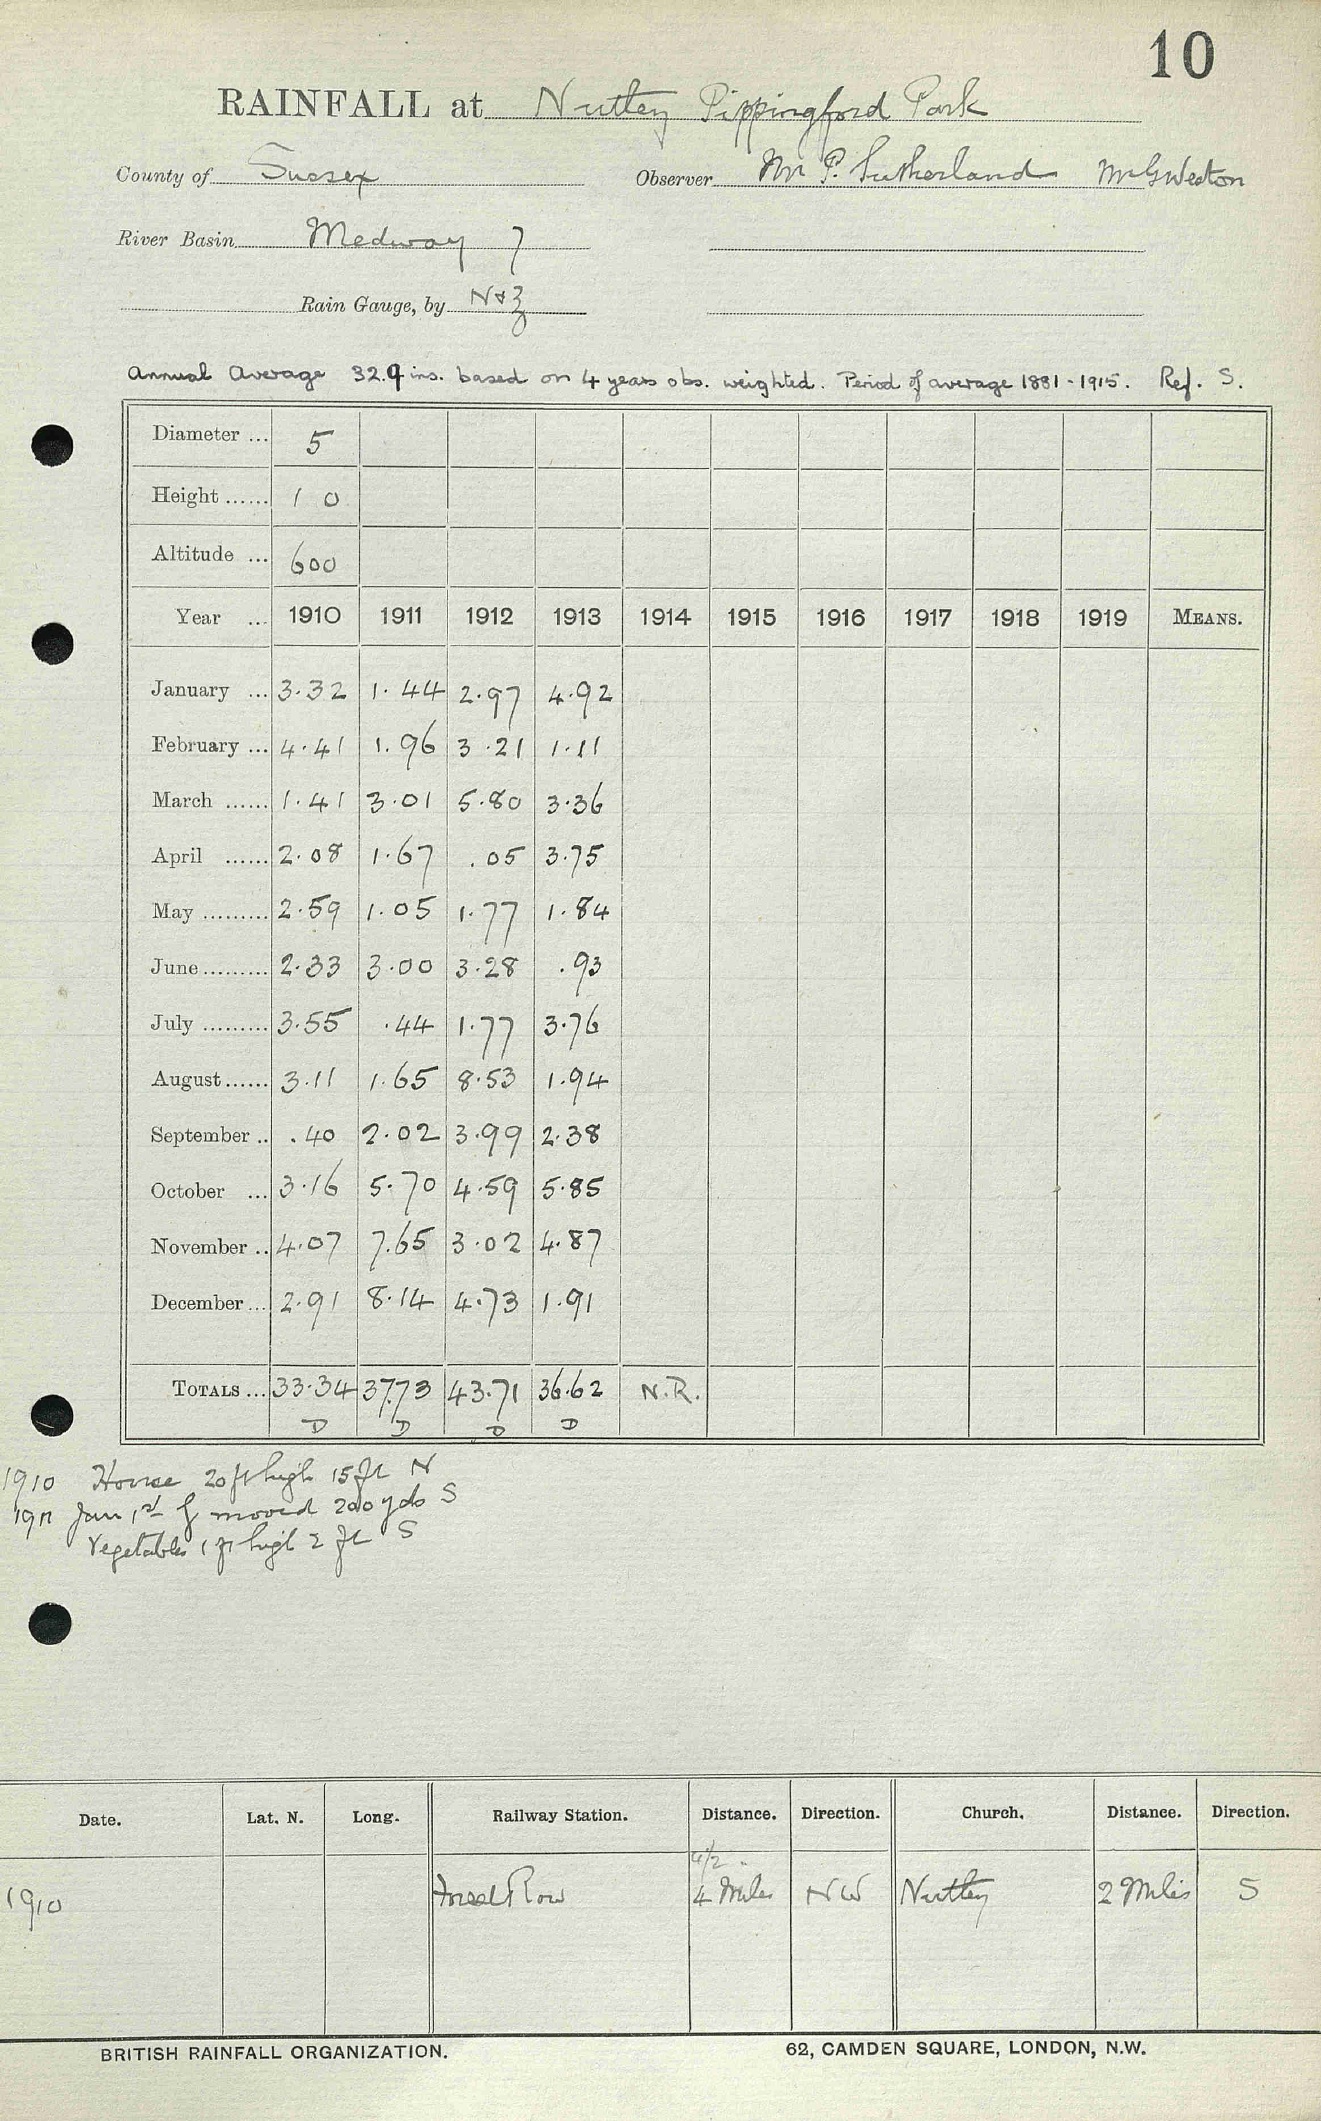 10
RAINFALL at Nutley Pippingford Park
County of Sussex Observer Mr P. Sutherland Mr G Weston
River Basin Medway 7
Rain Gauge, by N & Z
Annual Average 32.9 ins. based on 4 years obs. weighted. Period of average 1881-1915. Ref. S.
Diameter ... 5
Height ...... 1 0
Altitude ... 600
Year ... 1910 1911 1912 1913 1914 1915 1916 1917 1918 1919 MEANS.
January ... 3.32 1.44 2.97 4.92
February ... 4.41 1.96 3.21 1.11
March ...... 1.41 3.01 5.80 3.36
April ...... 2.08 1.67 .05 3.75
May ......... 2.59 1.05 1.77 1.84
June ......... 2.33 3.00 3.28 .93
July ......... 3.55 .44 1.77 3.76
August ...... 3.11 1.65 8.53 1.94
September .. .40 2.02 3.99 2.38
October ... 3.16 5.70 4.59 5.85
November .. 4.07 7.65 3.02 4.87
December ... 2.91 8.14 4.73 1.91
TOTALS ... 33.34 37.73 43.71 36.62 N.R.
D D D D
1910 House 20 ft high 15 ft N
1911 Jan 1st G moved 200 yds S
Vegetables 1 ft high 2 ft S
Date. Lat. N. Long. Railway Station. Distance. Direction. Church. Distance. Direction.
4 1/2
1910 Forest Row 4 Miles NW Nutley 2 Miles S
BRITISH RAINFALL ORGANIZATION. 62, CAMDEN SQUARE, LONDON, N.W.